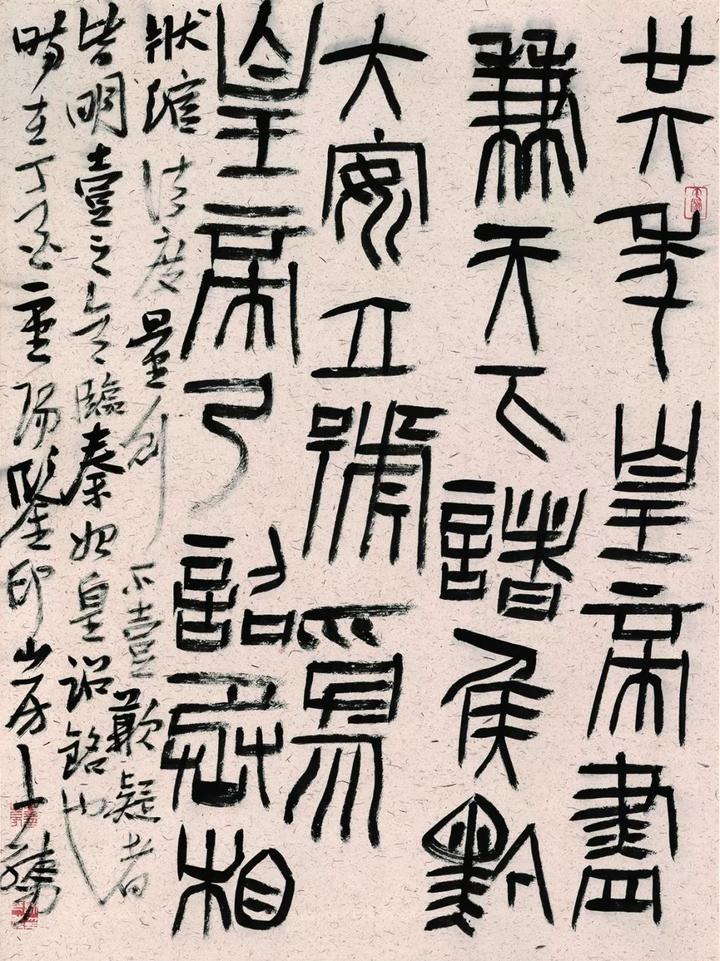 廿六年皇帝盡
兼天下諸侯黔
大安立號為
皇帝乃詔丞相
狀綰法度量則不壹歉疑者
皆明壹之臨秦始皇詔銘也
時在丁酉重陽鑒印山房